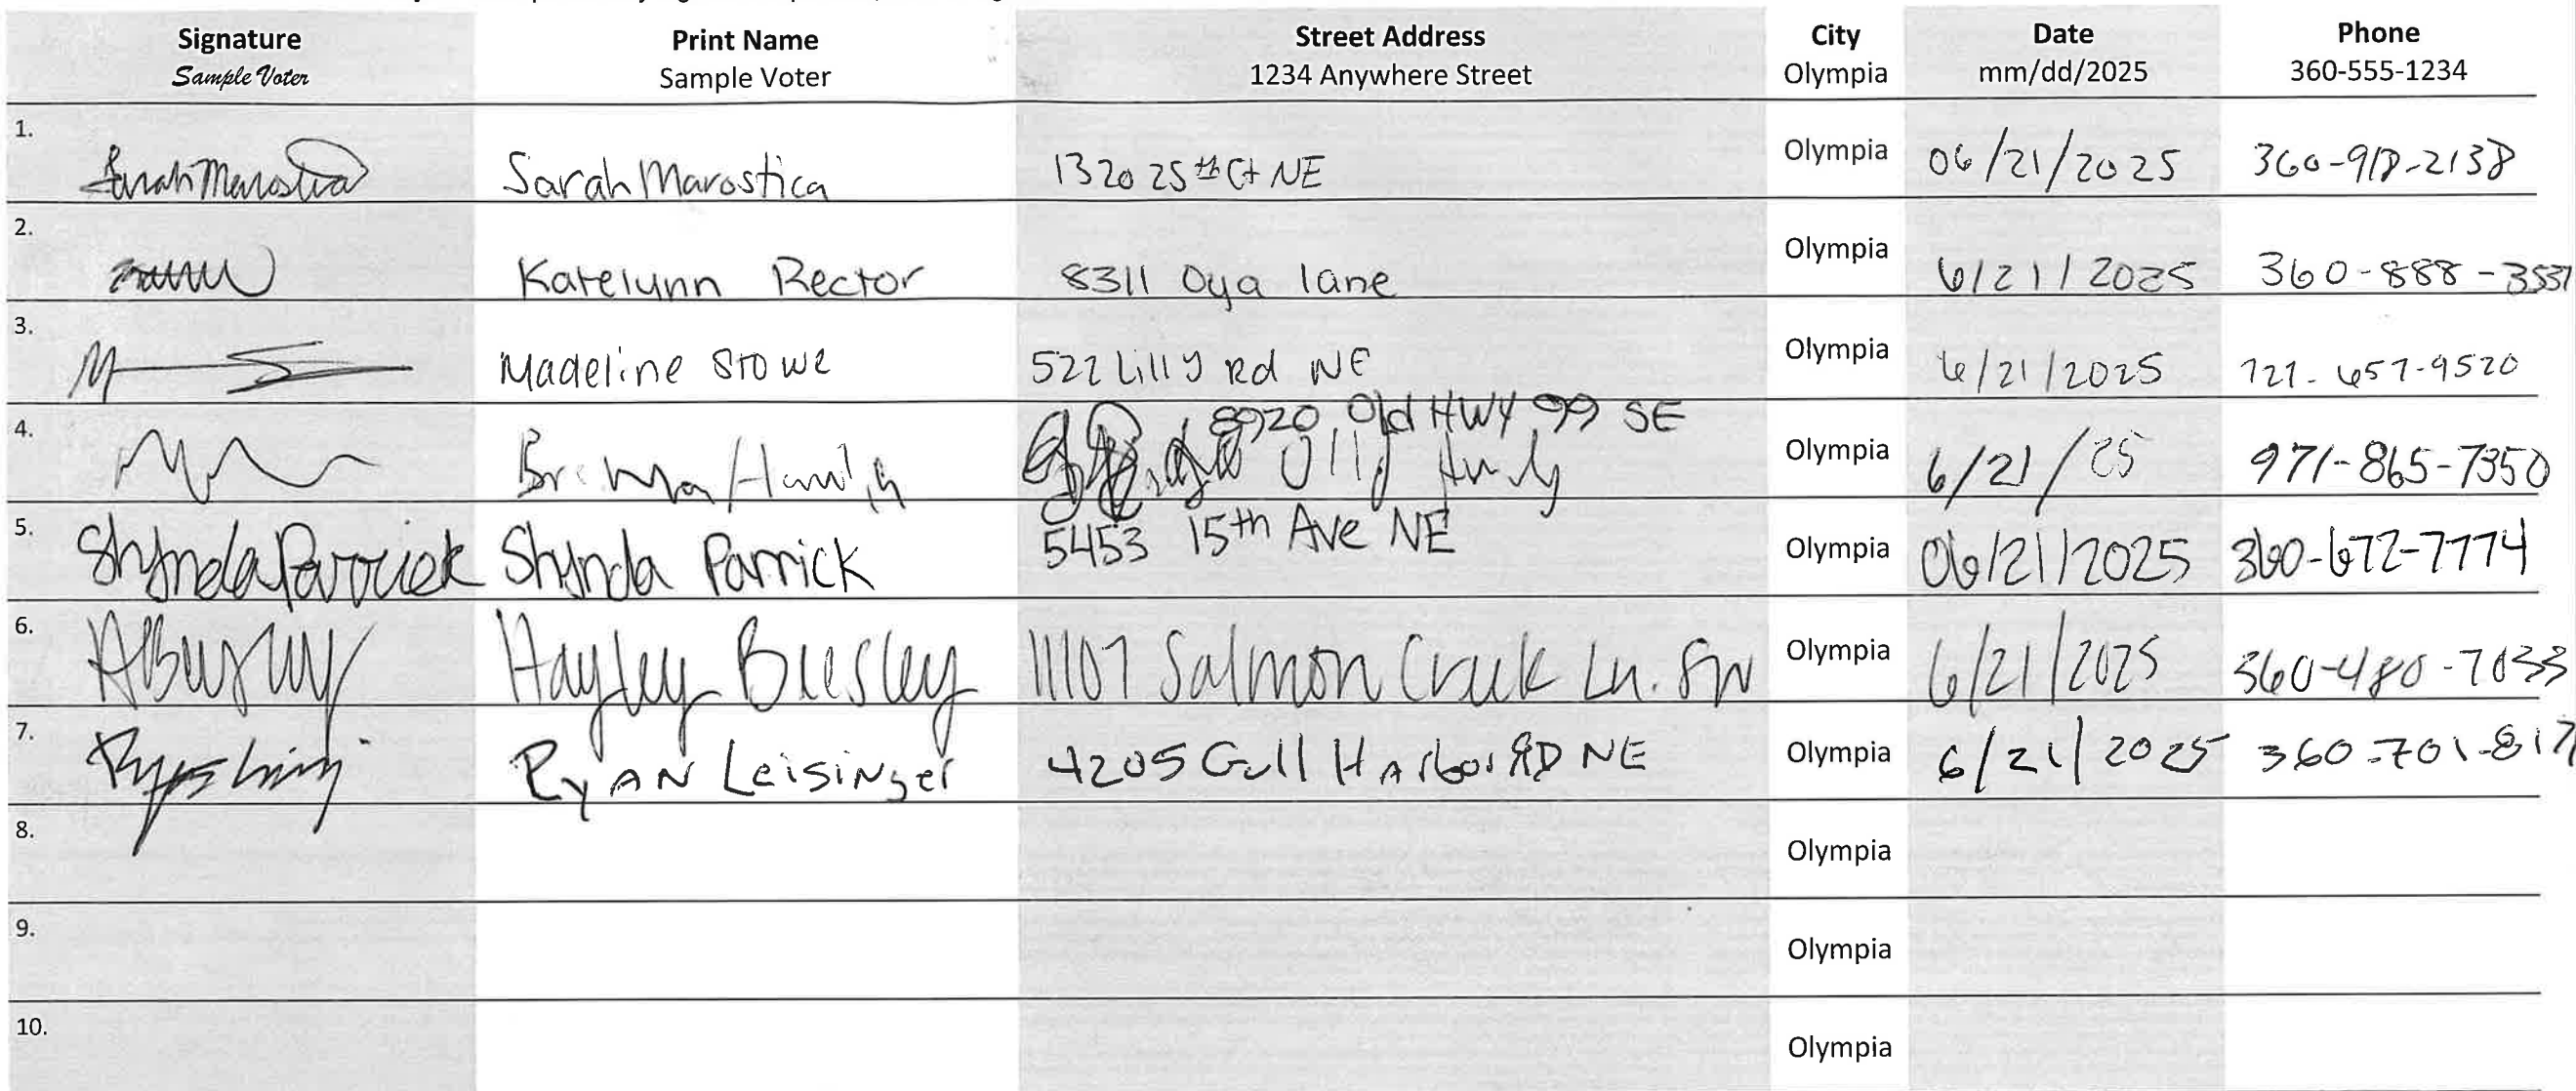 Signature Print Name Street Address City Date Phone
Sample Voter Sample Voter 1234 Anywhere Street Olympia mm/dd/2025 360-555-1234
1. Sarah Marostica Sarah Marostica 1320 25th Ct NE Olympia 06/21/2025 360-918-2138
2. Katelynn Rector 8311 Oya lane Olympia 6/21/2025 360-888-3531
3. Madeline Stowe 522 Lilly Rd NE Olympia 6/21/2025 727-657-9520
8920 Old HWY 99 SE
4. Olympia 6/21/25 971-865-7350
5. Shynda Parrick Shynda Parrick 5453 15th Ave NE Olympia 06/21/2025 360-672-7774
6. Hayley Buesley 11107 Salmon Creek Ln. SW Olympia 6/21/2025 360-480-7033
7. Ryan Leisinger 4205 Gull Harbor RD NE Olympia 6/21/2025 360-701-817
8. Olympia
9. Olympia
10. Olympia